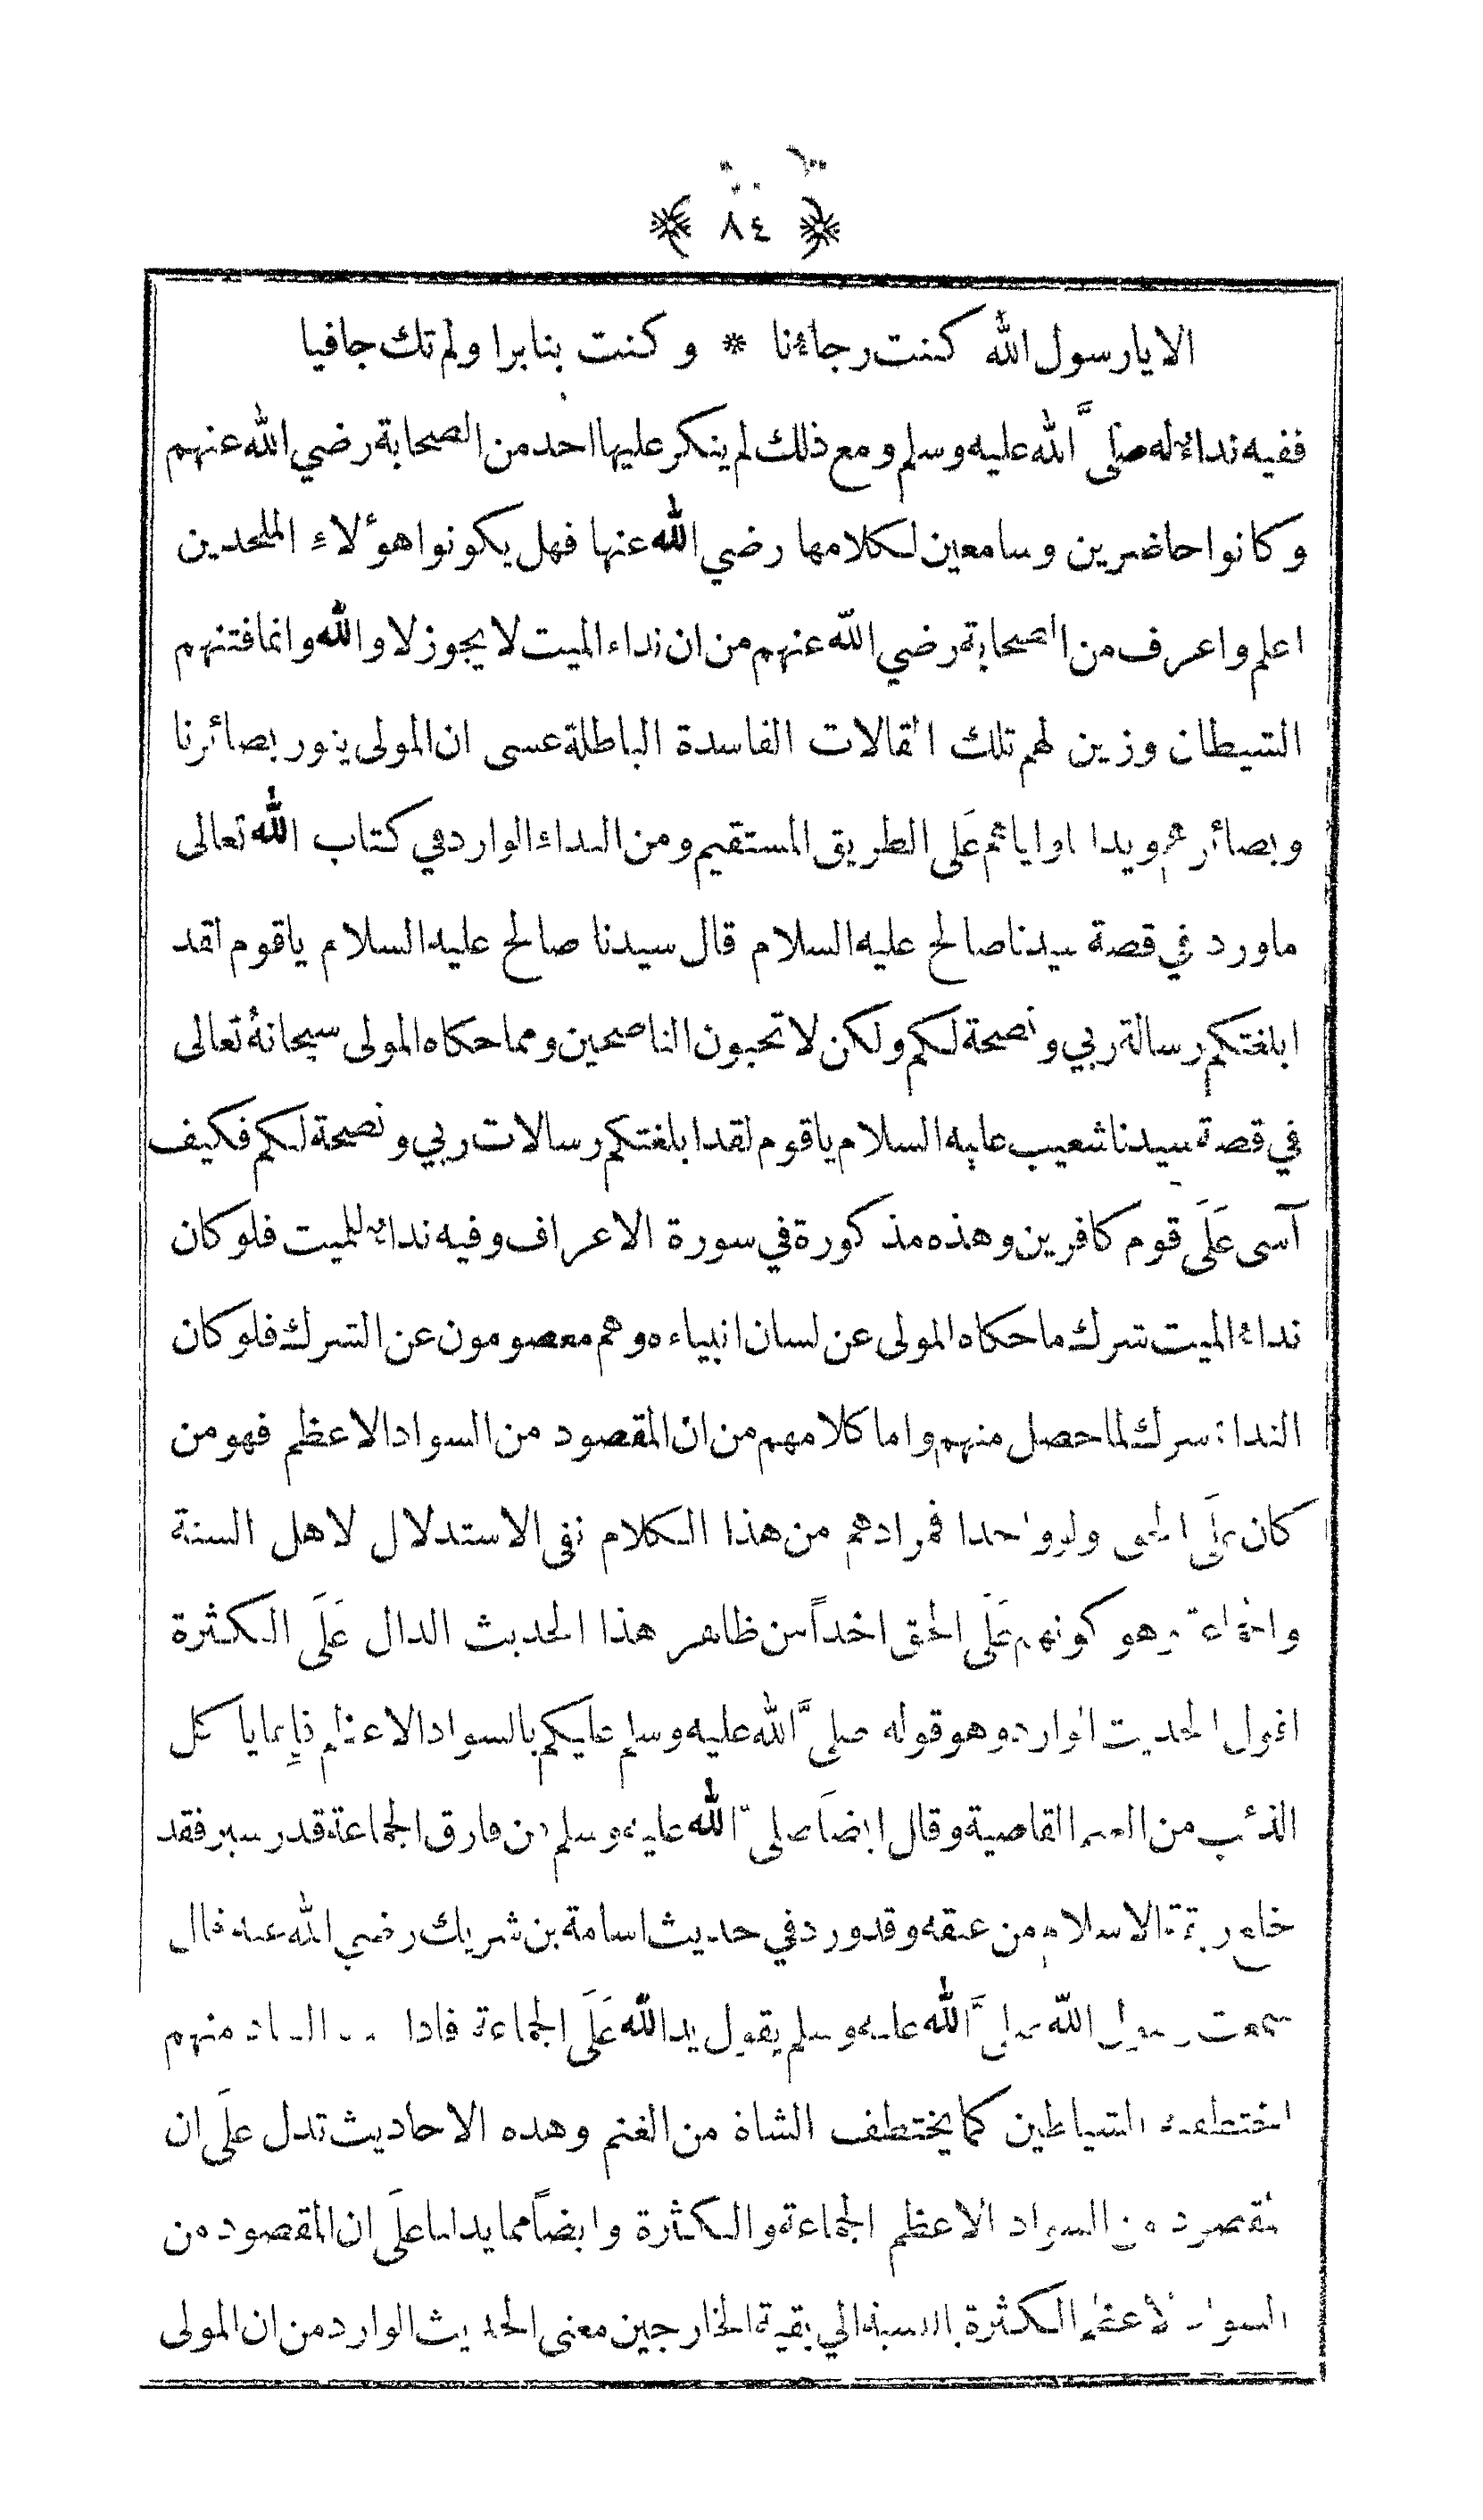 ﴿ ٨٤ ﴾
الا يا رسول الله كنت رجاؤنا * وكنت بنا برا ولم تك جافيا
ففيه نداؤه له صلى الله عليه وسلم ومع ذلك لم ينكر عليها احد من الصحابة رضي الله عنهم
وكانوا حاضرين وسامعين لكلامها رضي الله عنها فهل يكونوا هؤلاء الملحدين
اعلم واعرف من الصحابة رضي الله عنهم من ان نداء الميت لا يجوز لا والله وانما فتنهم
الشيطان وزين لهم تلك القالات الفاسدة الباطلة عسى ان المولى ينور بصائرنا
وبصائرهم ويدلنا واياهم عَلَى الطريق المستقيم ومن النداء الوارد في كتاب الله تعالى
ماورد في قصة سيدنا صالح عليه السلام قال سيدنا صالح عليه السلام ياقوم لقد
ابلغتكم رسالة ربي ونصحة لكم ولكن لا تحبون الناصحين ومما حكاه المولى سبحانهُ تعالى
في قصة سيدنا شعيب عليه السلام ياقوم لقد ابلغتكم رسالات ربي ونصحة لكم فكيف
آسى عَلَى قوم كافرين وهذه مذكورة في سورة الاعراف وفيه نداؤه للميت فلو كان
نداءُ الميت شرك ما حكاه المولى عن لسان انبياءه وهم معصومون عن الشرك فلو كان
النداءُ شرك لما حصل منهم واما كلامهم من ان المقصود من السواد الاعظم فهو من
كان عَلَى الحق ولو واحدا فمرادهم من هذا الكلام نفي الاستدلال لاهل السنة
والجماعة وهو كونهم عَلَى الحق اخذاً من ظاهر هذا الحديث الدال عَلَى الكثرة
اقول الحديث الوارد وهو قوله صلى الله عليه وسلم عليكم بالسواد الاعظم فإنما يأكل
الذئب من الغنم القاصية وقال ايضاً صلى الله عليه وسلم من فارق الجماعة قدر شبر فقد
خلع ربقة الاسلام من عنقه وقد ورد في حديث اسامة بن شريك رضي الله عنه قال
سمعت رسول الله صلى الله عليه وسلم يقول يد الله عَلَى الجماعة فاذا منهم
اختطفه الشياطين كما يختطف الشاة من الغنم وهذه الاحاديث تدل عَلَى ان
المقصود من السواد الاعظم الجماعة والكثرة وايضاً مما يدلنا عَلَى ان المقصود من
السواد الاعظم الكثرة بالنسبة الي بقية الخارجين معنى الحديث الوارد من ان المولى